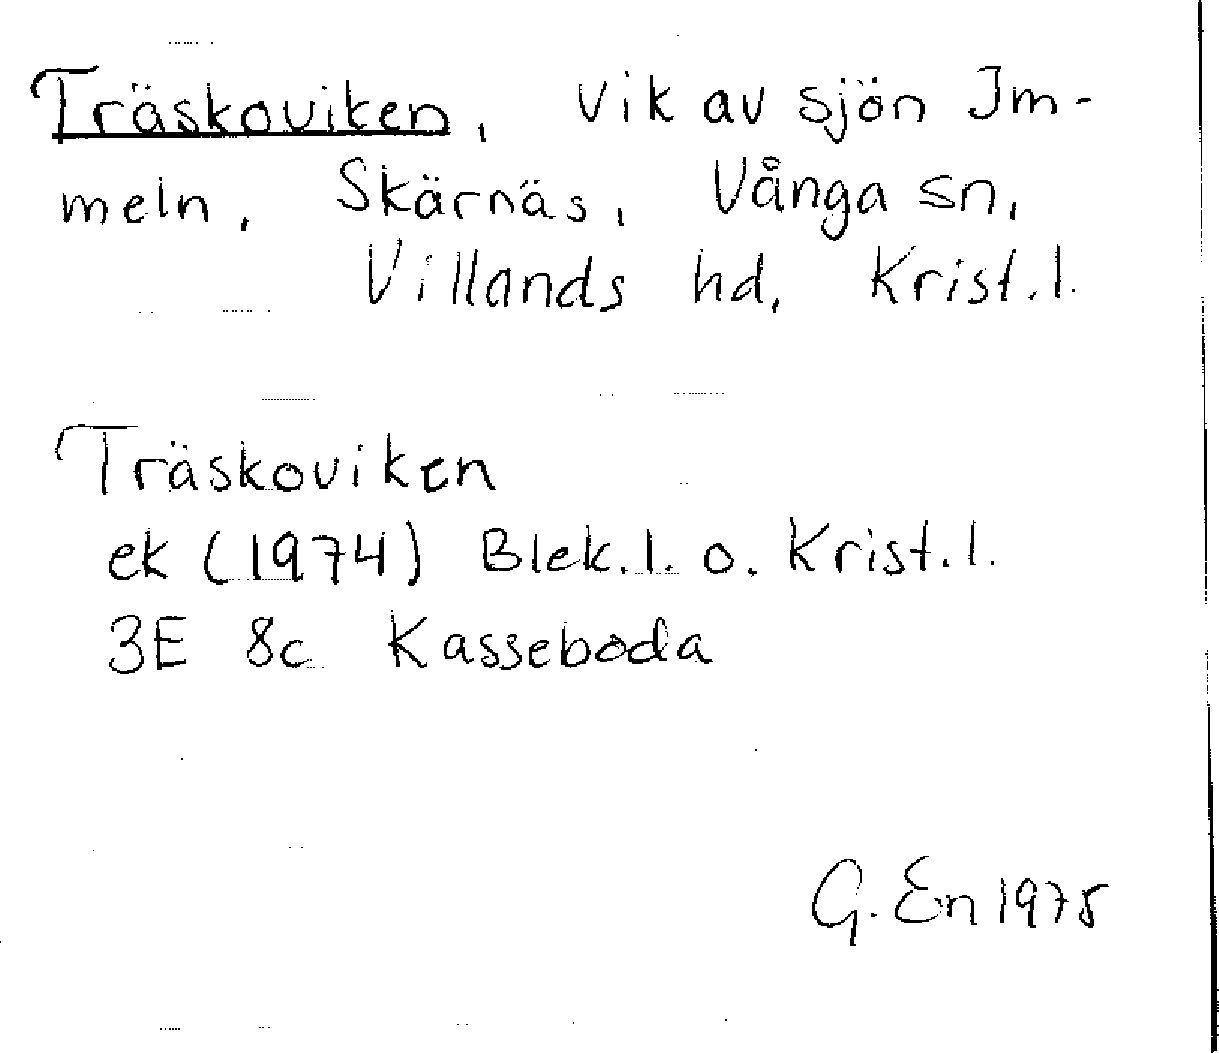 Träskoviken, vik av sjön Im-
meln, Skärnäs, Vånga sn,
Villands hd, Krist.l.
Träskoviken
ek (1974) Blek.l. o. Krist.l.
3E 8c Kasseboda
G. En 1975